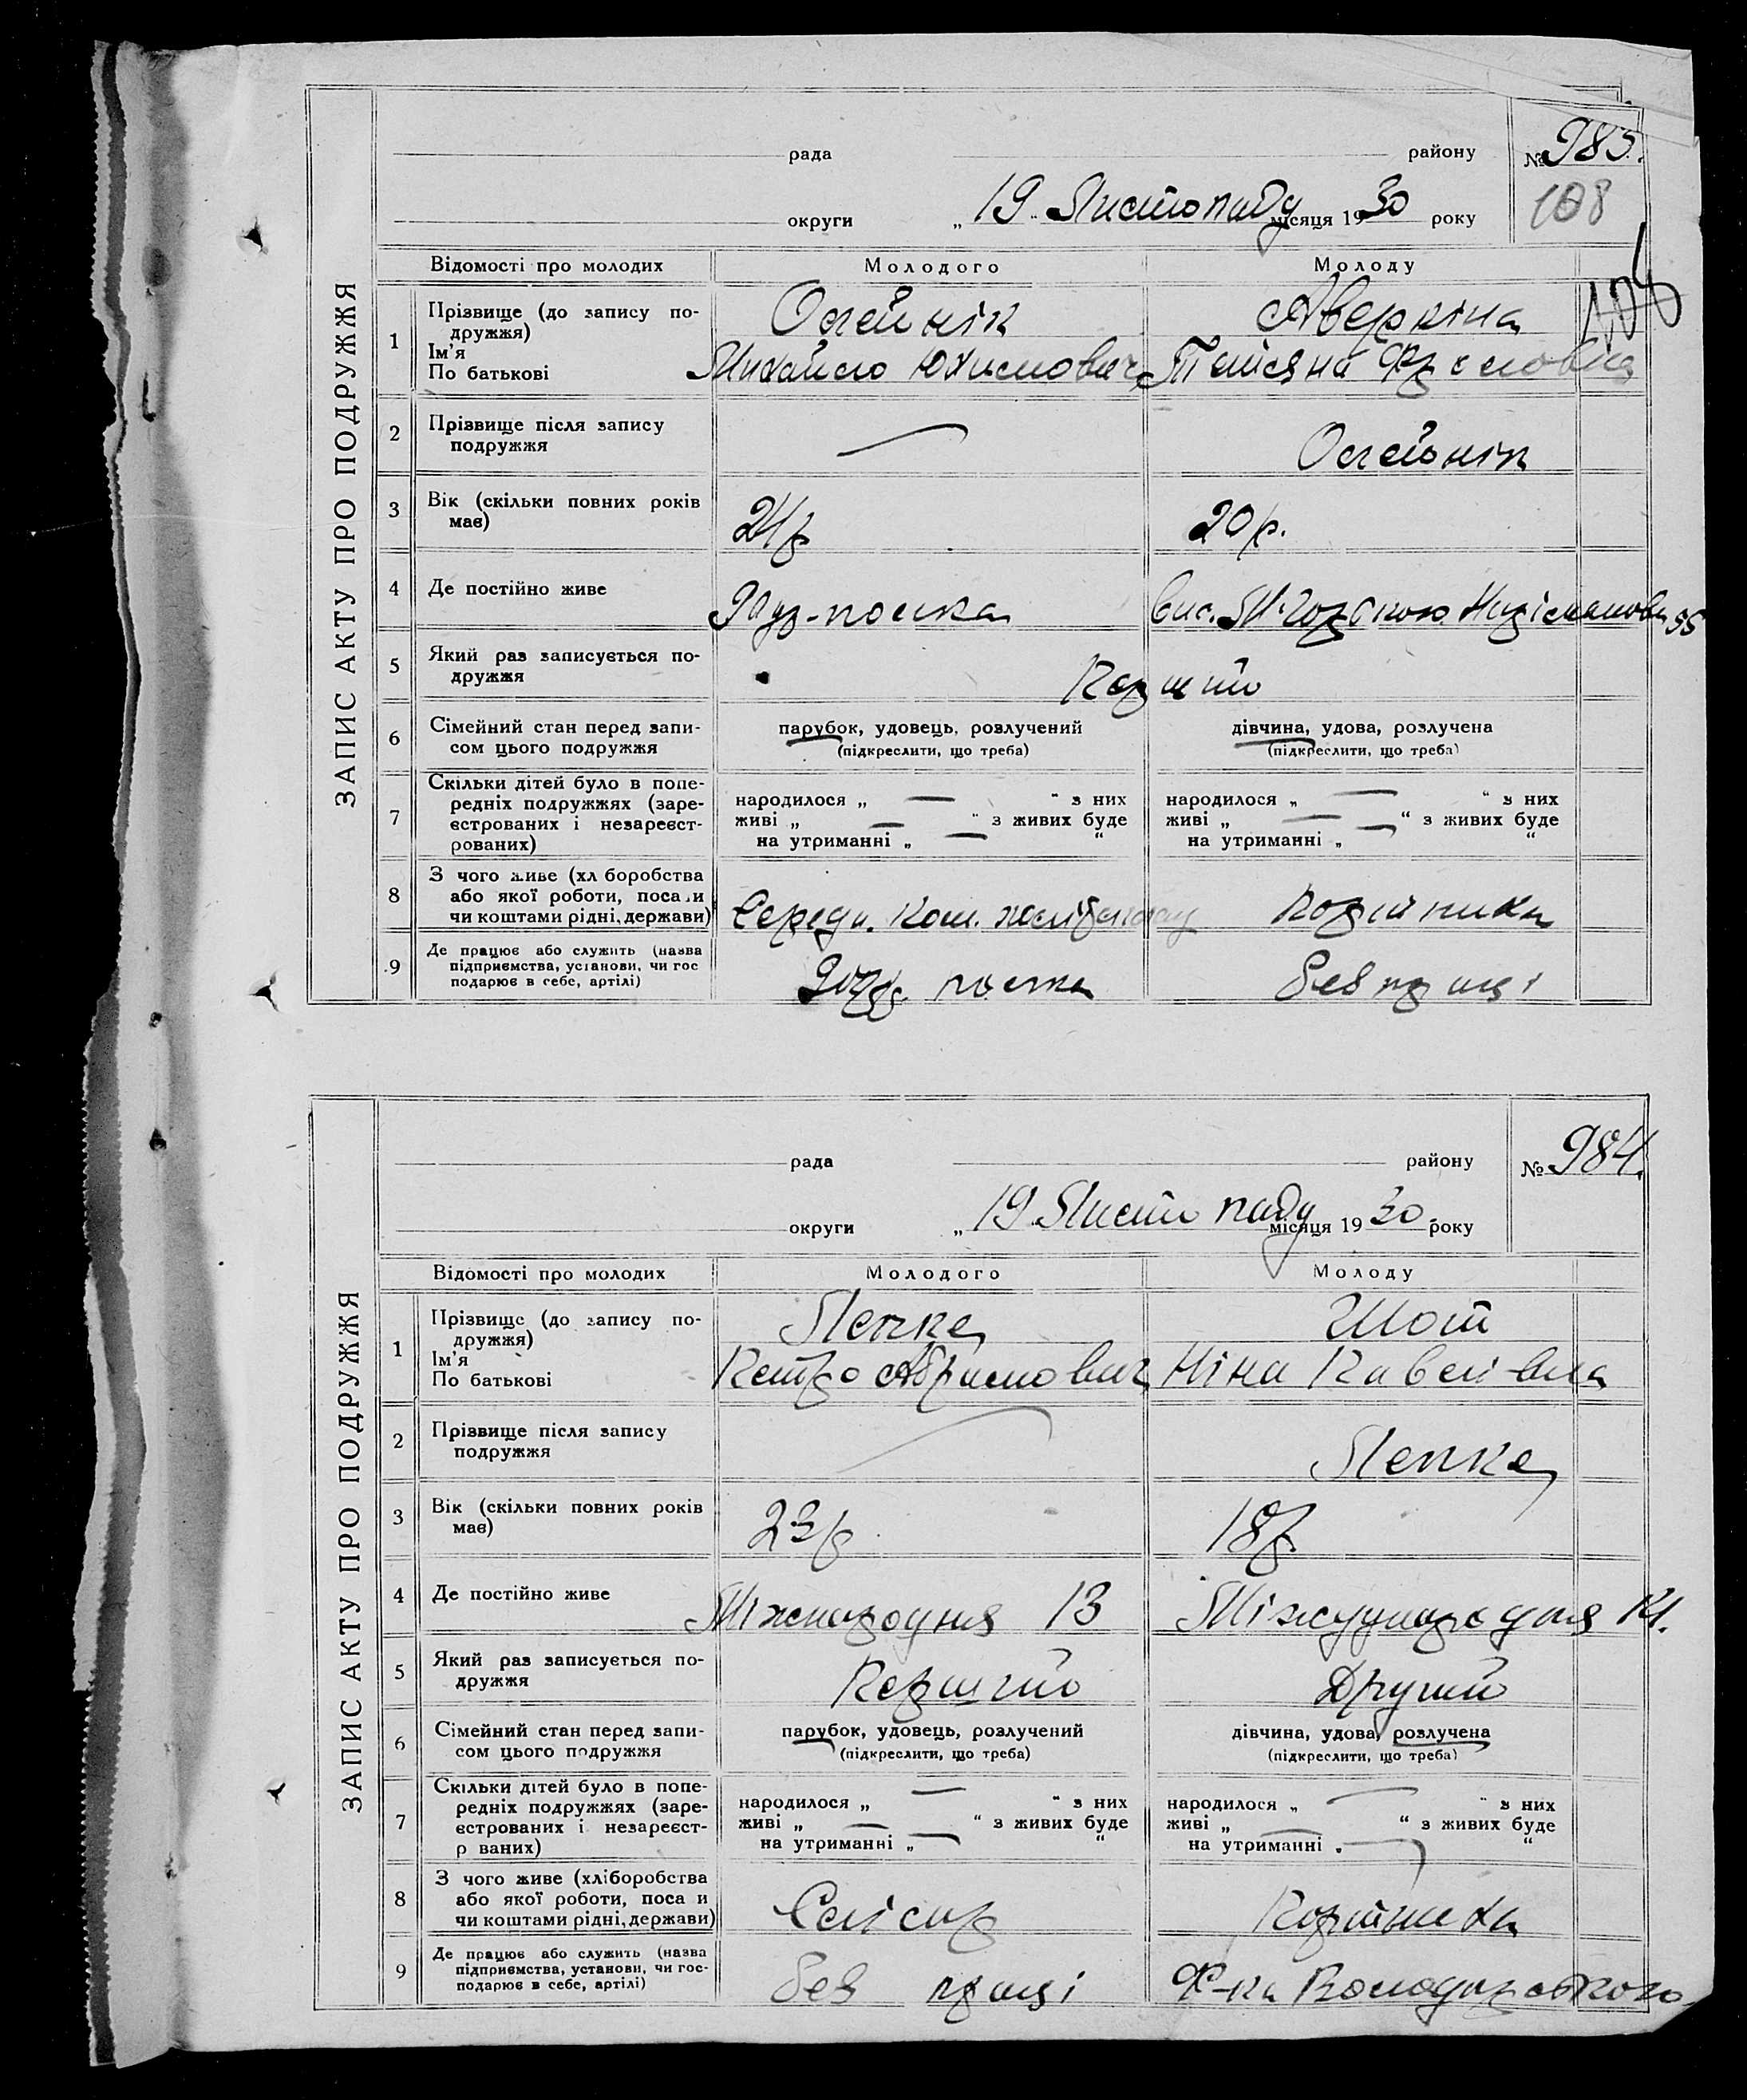 ЗАПИС АКТУ ПРО ПОДРУЖЖЯ
рада району № 983.
108
округи „ 19 " Листопаду місяця 1930 року
108
Відомості про молодих Молодого Молоду
1 Прізвище (до запису по-
дружжя) Олейнік Аверкіна
Ім'я
По батькові Михайло Юхимович Тетяна
2 Прізвище після запису
подружжя — Олейнік
3 Вік (скільки повних років
має) 24р 20р.
4 Де постійно живе
5 Який раз записується по-
дружжя Перший
6 Сімейний стан перед запи-
сом цього подружжя парубок, удовець, розлучений дівчина, удова, розлучена
(підкреслити, що треба) (підкреслити, що треба)
7 Скільки дітей було в попе-
редніх подружжях (заре-
єстрованих і незареєст-
рованих) народилося „ — " з них народилося „ — " з них
живі „ — " з живих буде живі „ — " з живих буде
на утриманні „ — " на утриманні „ — "
8 З чого живе (хл боробства
або якої роботи, поса и
чи коштами рідні, держави) Середн. ком. Робітниха
9 Де працює або служить (назва
підприємства, установи, чи гос
подарює в себе, артілі) без праці
ЗАПИС АКТУ ПРО ПОДРУЖЖЯ
рада району № 984.
округи „ 19 Листопаду місяця 1930. року
Відомості про молодих Молодого Молоду
1 Прізвище (до запису по-
дружжя) Лепке Шот
Ім'я
По батькові Петро Абрамович Ніна Павлівна
2 Прізвище після запису
подружжя — Лепке
3 Вік (скільки повних років
має) 23р. 18р
4 Де постійно живе Міжнародня 13 Міжнародня 14.
5 Який раз записується по-
дружжя Перший Другий
6 Сімейний стан перед запи-
сом цього подружжя парубок, удовець, розлучений дівчина, удова, розлучена
(підкреслити, що треба) (підкреслити, що треба)
7 Скільки дітей було в попе-
редніх подружжях (заре-
єстрованих і незареєст-
р ваних) народилося „ — " з них народилося „ — " з них
живі „ — " з живих буде живі „ — " з живих буде
на утриманні „ — " на утриманні „ — "
8 З чого живе (хліборобства
або якої роботи, поса и
чи коштами рідні, держави) Слісар Портниха
9 Де працює або служить (назва
підприємства, установи, чи гос-
подарює в себе, артілі) без праці Ф-ка Володарського